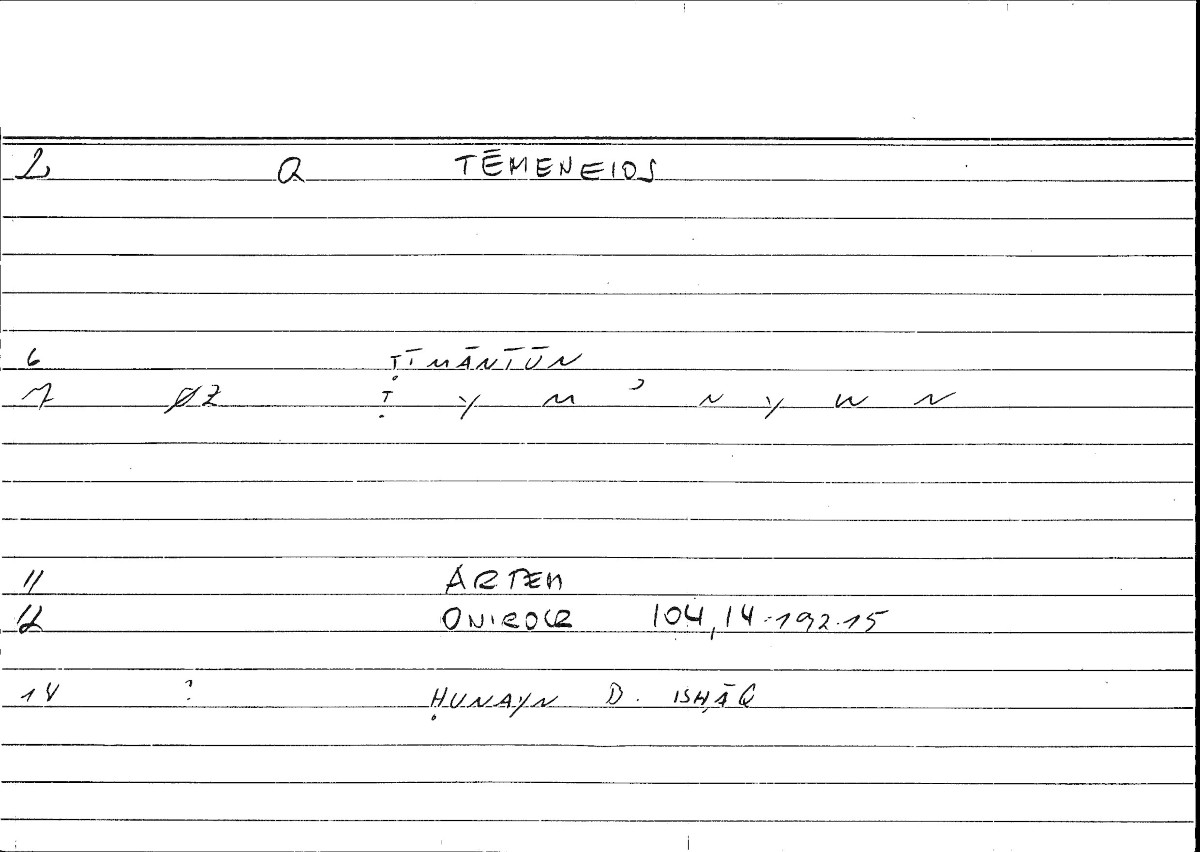 2 Q TĒMENEIOS
6 ṬĪMĀNĪŪN
7 ØZ Ṭ Y M ʾ N Y W N
11 ARTEM
12 ONIROCR 104,14 · 192.15
14 ? ḤUNAYN B. ISḤĀQ